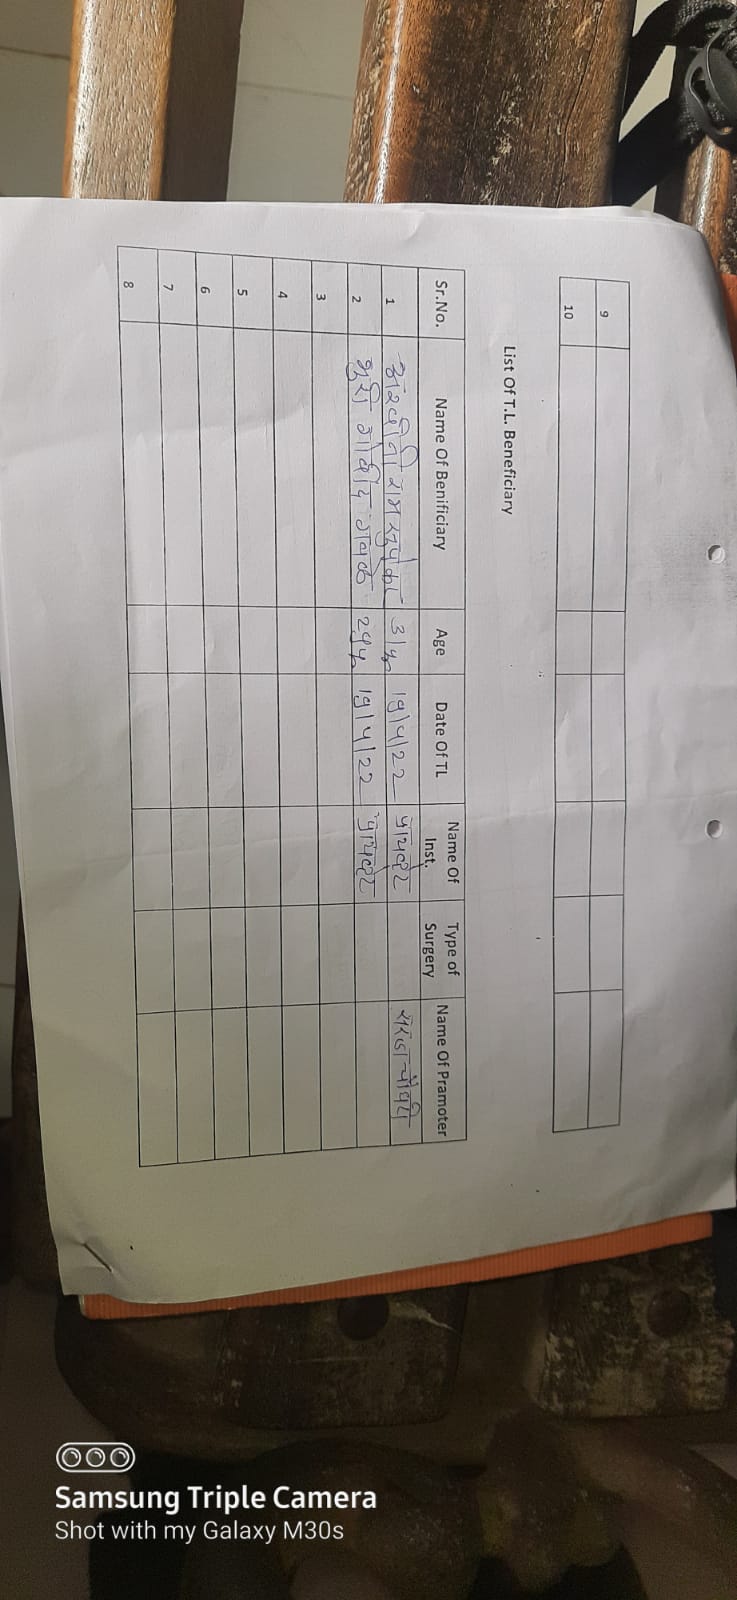 9
10
List Of T.L. Beneficiary
Sr.No. Name Of Benificiary Age Date Of TL Name Of Inst. Type of Surgery Name Of Pramoter
1 अश्वीनी राम 19/4/22 प्रायव्हेट
2 भुरी गोवींद गवळे 19/4/22 प्रायव्हेट
3
4
5
6
7
8
Samsung Triple Camera
Shot with my Galaxy M30s